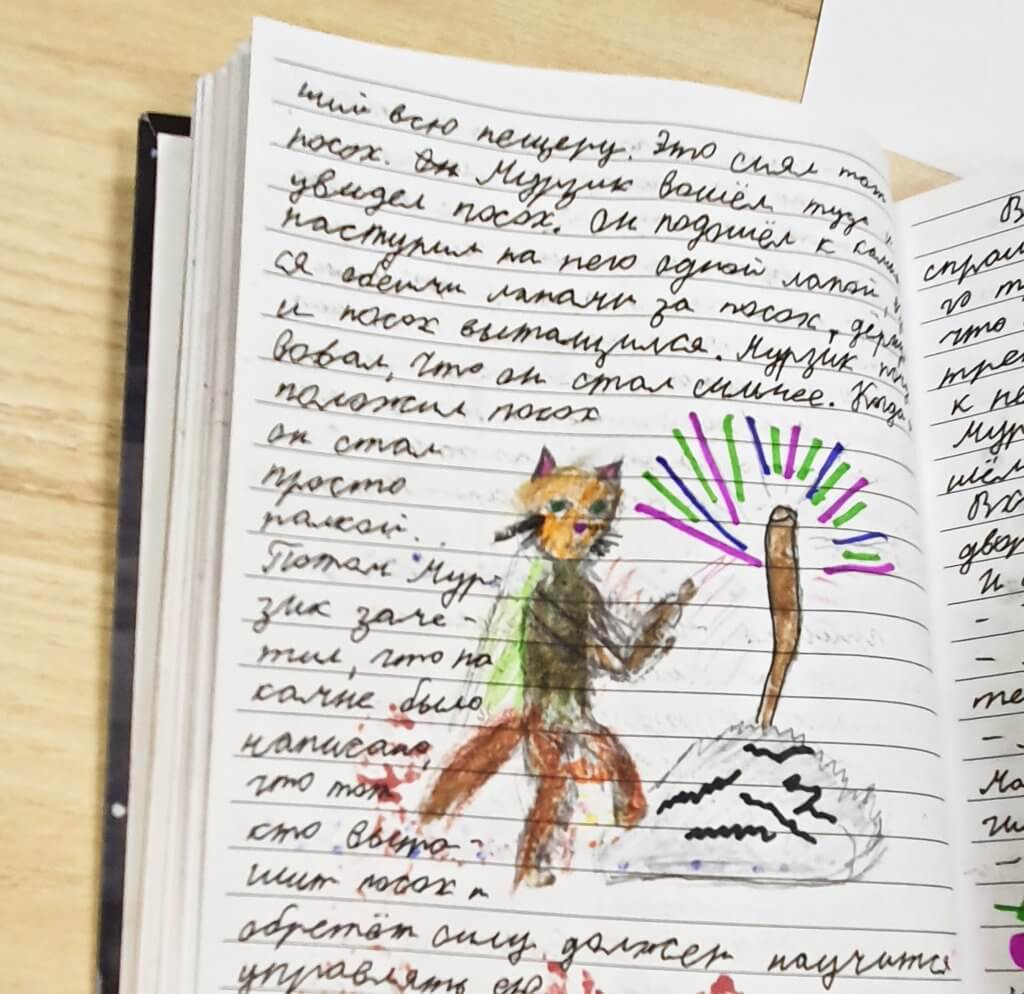 ший всю пещеру. Это сиял тот
посох. Он Мурзик вошёл туда и
увидел посох. Он подошёл к камн
наступил на него одной лапой
ся обеими лапами за посох, дёрн
и посох вытащился. Мурзик
вовал, что он стал сильнее. Когда
положил посох
он стал
просто
палкой.
Потом Мур-
зик заме-
тил, что на
камне было
написано,
что тот
кто выта-
щит посох и
обретёт силу должен научится
управлять ею
В
спро
го т
что
тре
к не
Мур
шёл
Вх
двор
И
-
-
те
-